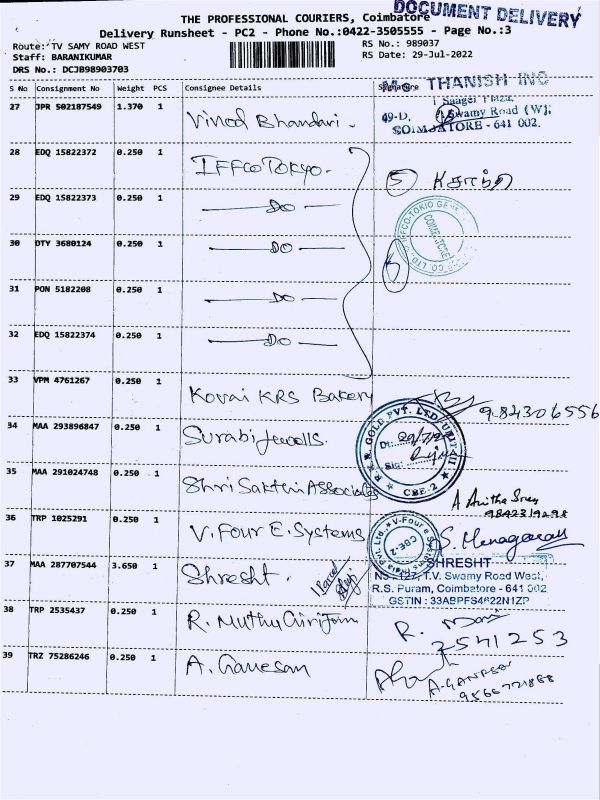 DOCUMENT DELIVERY
THE PROFESSIONAL COURIERS, Coimbatore
Delivery Runsheet - PC2 - Phone No.:0422-3505555 - Page No.:3
Route: TV SAMY ROAD WEST RS No.: 989037
Staff: BARANIKUMAR RS Date: 29-Jul-2022
DRS No.: DCJB98903703
S No Consignment No Weight PCS Consignee Details Signature
27 JPR 502187549 1.370 1 Vinod Bhandari -
THANISH INC
49-D, Swamy Road (W),
COIMBATORE - 641 002.
28 EDQ 15822372 0.250 1 IFFCO TOKYO.
5
29 EDQ 15822373 0.250 1 DO
30 DTY 3680124 0.250 1 DO
31 PON 5182208 0.250 1 DO
32 EDQ 15822374 0.250 1 DO
33 VPM 4761267 0.250 1 Kovai KRS Bakery
984306556
34 MAA 293896847 0.250 1 Surabi Jewells.
CBE-2
35 MAA 291024748 0.250 1 Shri Sakthi Associates
A Anitha Sree
9842319298
36 TRP 1025291 0.250 1 V. Four E. Systems
CBE-2
37 MAA 287707544 3.650 1 Shresht.
SHRESHT
No : 127, T.V. Swamy Road West,
R.S. Puram, Coimbatore - 641 002
GSTIN : 33ABPFS4622N1ZP
38 TRP 2535437 0.250 1 R. Muthu Giriram
R. Mani
2541253
39 TRZ 75286246 0.250 1 A. Ganesan
A-GANESAN
9566721868